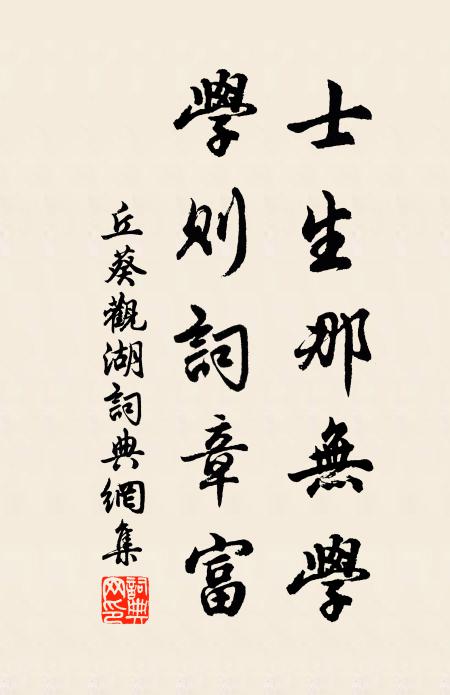 士生那無學
學則詞章富
丘葵觀湖詞典網集
詞典網印